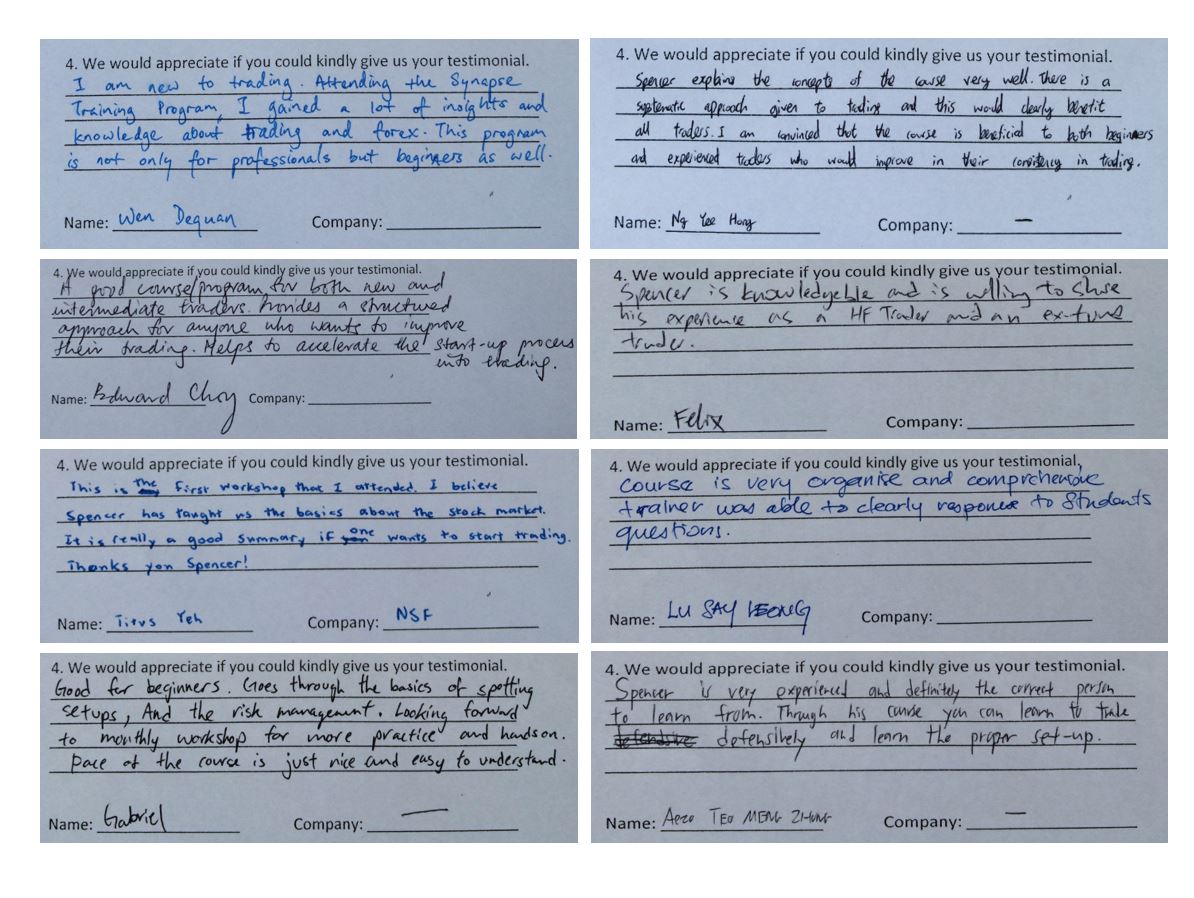 4. We would appreciate if you could kindly give us your testimonial.
I am new to trading. Attending the Synapse
Training Program, I gained a lot of insights and
knowledge about trading and forex. This program
is not only for professionals but beginners as well.
Name: Wen Dequan Company:
4. We would appreciate if you could kindly give us your testimonial.
Spencer explains the concepts of the course very well. There is a
systematic approach given to trading and this would clearly benefit
all traders. I am convinced that the course is beneficial to both beginners
and experienced traders who would improve in their consistency in trading.
Name: Ng Yee Hong Company: —
4. We would appreciate if you could kindly give us your testimonial.
A good course/program for both new and
intermediate traders. Provides a structured
approach for anyone who wants to improve
their trading. Helps to accelerate the start-up process
into trading.
Name: Edward Choy Company:
4. We would appreciate if you could kindly give us your testimonial.
Spencer is knowledgeable and is willing to share
his experience as a HF Trader and an ex-fund
trader.
Name: Felix Company:
4. We would appreciate if you could kindly give us your testimonial.
This is the first workshop that I attended. I believe
Spencer has taught us the basics about the stock market.
It is really a good summary if one wants to start trading.
Thanks you Spencer!
Name: Titus Yeh Company: NSF
4. We would appreciate if you could kindly give us your testimonial,
course is very organise and comprehensive
trainer was able to clearly response to students
questions.
Name: LU SAY LEONG Company:
4. We would appreciate if you could kindly give us your testimonial.
Good for beginners. Goes through the basics of spotting
setups, And the risk management. Looking forward
to monthly workshop for more practice and handson.
Pace of the course is just nice and easy to understand.
Name: Gabriel Company: —
4. We would appreciate if you could kindly give us your testimonial.
Spencer is very experienced and definitely the correct person
to learn from. Through his course you can learn to trade
defensively and learn the proper set-up.
Name: TEO MENG ZHUNG Company: —